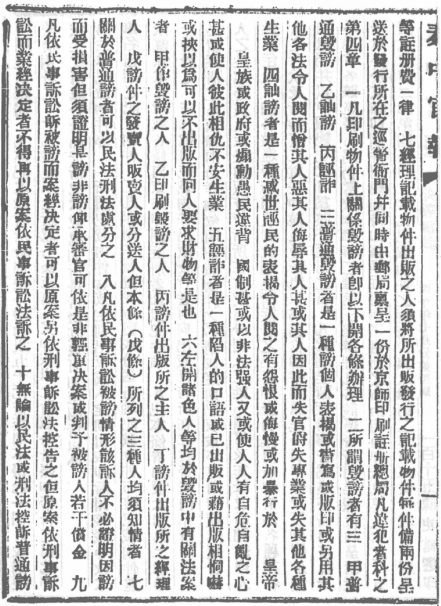 秦中官報
等註册費一律　七經理記載物件出版之人須將所出版發行之記載物件每件備兩份呈
送於發行所在之巡警衙門幷同時由郵局稟呈一份於京師印刷註册總局凡違犯者科之
第四章　一凡印刷物件上關係毀謗者卽以下開各條辦理　二所謂毀謗者有三　甲普
通毀謗　乙訕謗　丙誣詐　三普通毀謗者是一種謗個人表揚或當寫或版印或另用其
他各法令人閱而憎其人惡其人侮辱其人甚或其人因此而失官府失專業或失其他各種
生業　四訕謗者是一種惑世誣民的表揚令人閱之有怨恨或侮慢或加暴行於　皇帝
皇族或政府或煽動愚民違背　國制甚或以非法強人又或使人人有自危自亂之心
甚或使人彼此相仇不安生業　五誣詐者是一種陷人的口語或已出版或藉出版相恫嚇
或挾以爲可以不出版而向人要求財物等是也　六左開諸色人等均於毀謗中有關法案
者　甲作毀謗之人　乙印刷毀謗之人　丙謗件出版所之主人　丁謗件出版所之經理
人　戊謗件之發賣人販賣人或分送人但本條（戊條）所列之三種人均須知情者　七
關於普通謗者可以民法刑法處分之　八凡依民事訴訟被謗情形該訴人不必證明因謗
而受損害但須證明是謗非謗仰承審官可依是非輕重決案或判予被謗人若干償金　九
凡依民事訴訟訴被謗而案經決定者可以原案另依刑事訴訟法控告之但原案依刑事訴
訟而業經決定者不得再以原案依民事訴訟法訴之　十無論以民法或刑法控訴普通謗